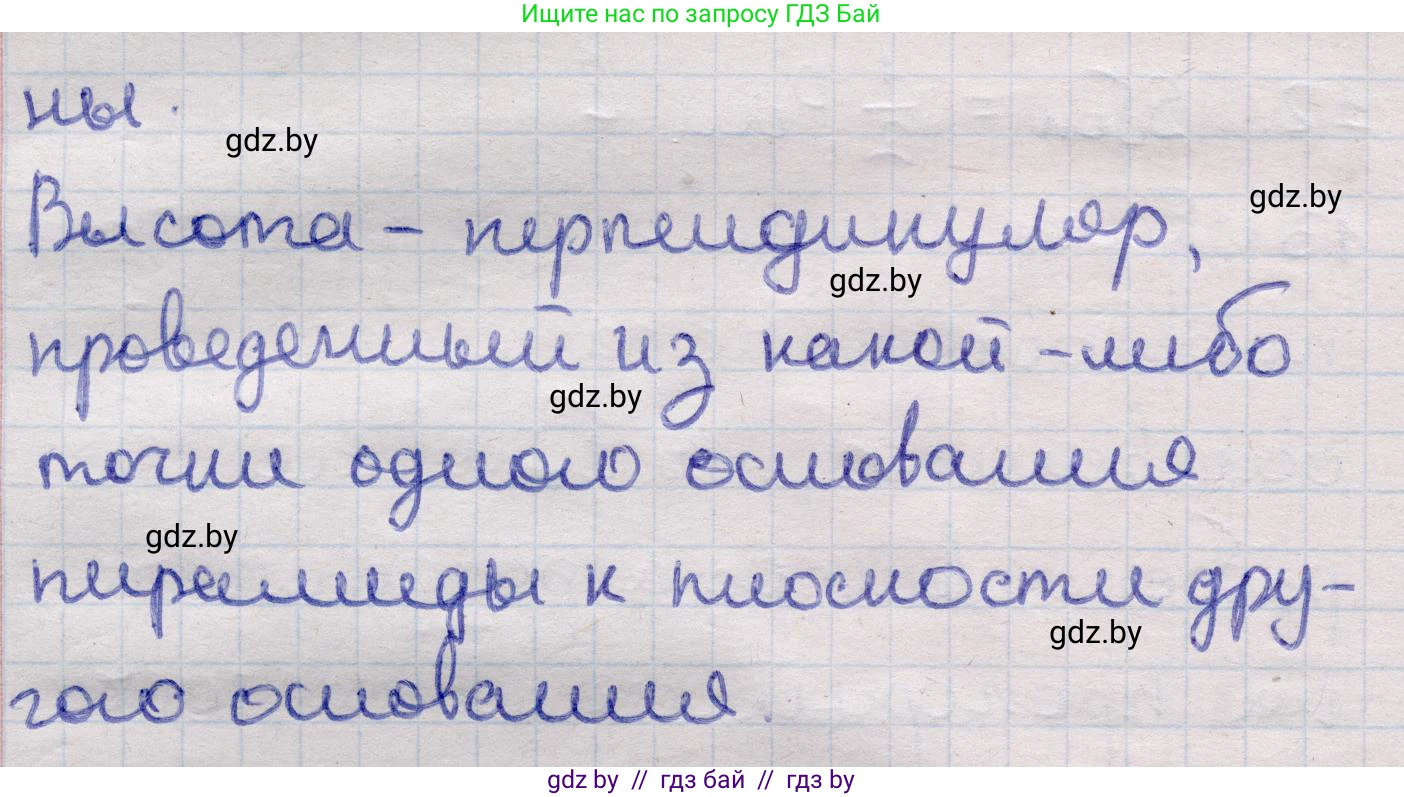 Ищите нас по запросу ГДЗ Бай
ны.
gdz.by
Высота – перпендикуляр,
gdz.by
gdz.by
проведенный из какой-либо
gdz.by
точки одного основания
gdz.by
пирамиды к плоскости дру-
gdz.by
гого основания.
gdz by // гдз бай // гдз by